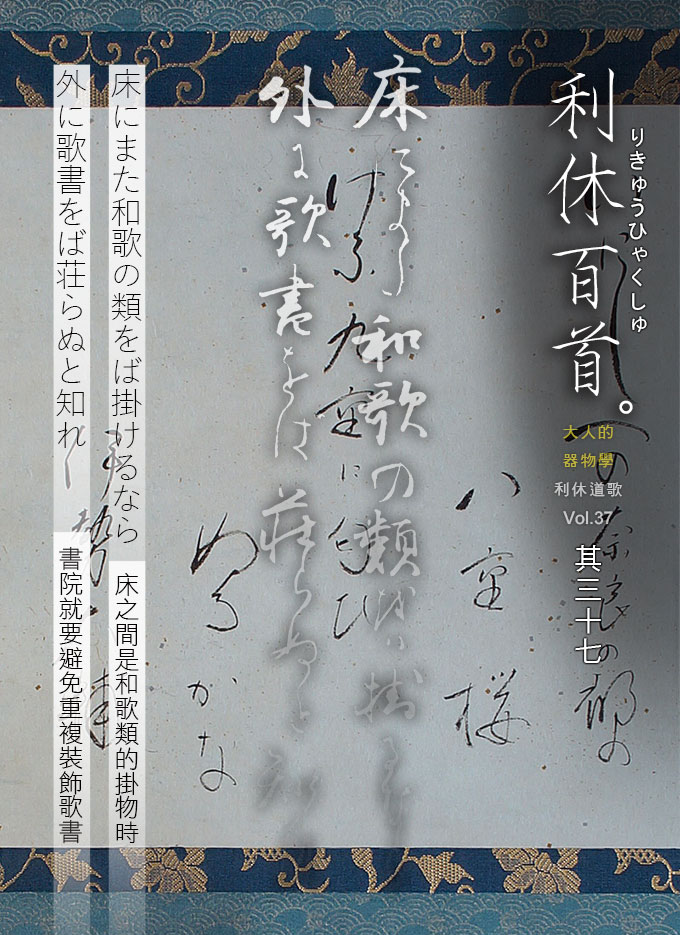 利休百首。
りきゅうひゃくしゅ
大人的
器物學
利休道歌
Vol.37
其三十七
床にまた和歌の類をば掛けるなら
外に歌書をば荘らぬと知れ
床之間是和歌類的掛物時
書院就要避免重複裝飾歌書
いにしへの奈良の都の
八重桜
けふ九重に匂ひ
ぬるかな
伊勢大輔